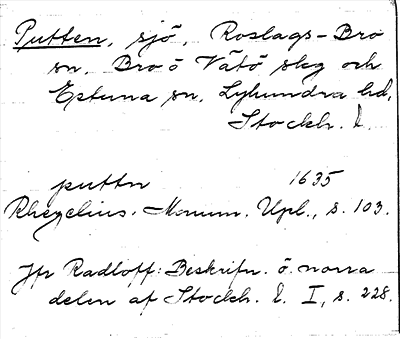 Putten, sjö, Roslags-Bro
sn. Bro o Vätö skg och
Estuna sn, Lyhundra hd,
Stockh. l.
puttn 1635
Rhezelius. Monum. Upl., s. 103.
Jfr Radloff: Beskrifn. ö. norra
delen af Stockh. l. I, s. 228.